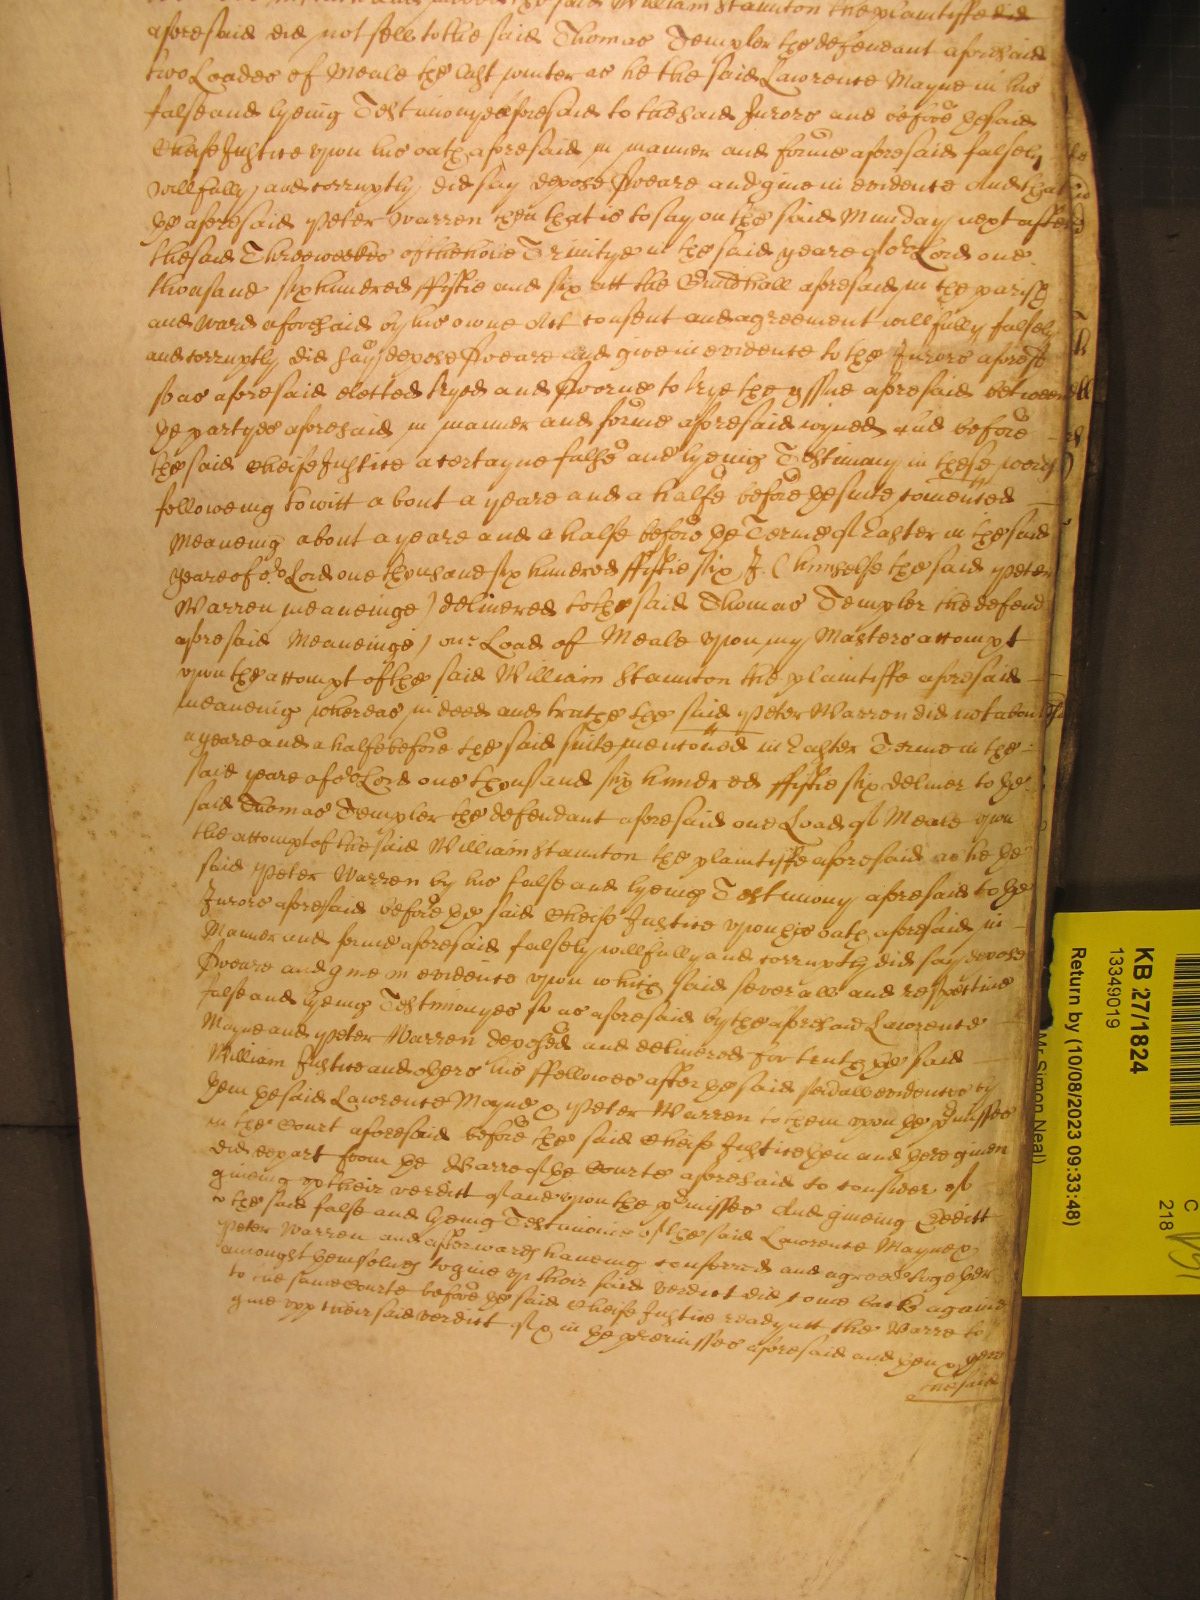 the said William Staunton the plaintiffe did
aforesaid did not sell to the said Thomas Templer the defendant aforesaid
two Loades of Meale the last winter as he the said Lawrence Mayne in his
false and lyeing Testimonye aforesaid to the said Jurors and before ye said
Cheife Justice vpon his oath aforesaid in manner and forme aforesaid falsely
willfully and corruptly did say depose sweare and give in evidence And that
ye aforesaid Peter Warren then that is to say on the said Munday next after
the said Three weekes of the holie Trinitye in the said yeare of or Lord one
thousand six hundred ffiftie and six att the Guildhall aforesaid in the parish
and Ward aforesaid by his owne Act consent and agreement willfully falsely
and corruptly did say depose sweare and give in evidence to the Jurors aforesd
so as aforesaid elected tryed and sworne to trye the yssue aforesaid betweene
ye partyes aforesaid in manner and forme aforesaid ioyned And before
the said Cheife Justice a certayne false and lyeing Testimony in these words
followeing to witt about a yeare and a halfe before ye suite comenced
Meaneing about a yeare and a halfe before ye Terme of Easter in the said
yeare of or Lord one thousand six hundred ffiftie six I. (himselfe the said Peter
Warren meaneinge) delivered to the said Thomas Templer the defend
aforesaid Meaneinge) one Load of Meale vpon my Masters attompt
vpon the attompt of the said William Staunton the plaintiffe aforesaid
meaneing whereas in deed and truthe the said Peter Warren did not about
a yeare and a halfe before the said suite menconed in Easter Terme in the
said yeare of or Lord one thousand six hundred ffiftie six deliver to ye
said Thomas Templer the defendant aforesaid one Load of Meale vpon
the attompt of the said William Staunton the plaintiffe aforesaid as he ye
said Peter Warren by his false and lyeing Testimony aforesaid to ye
Jurors aforesaid before ye said Cheife Justice vpon his oath aforesaid in
Manner and forme aforesaid falsely willfully and corruptly did say depose
Sweare and give in evidence vpon which said severall and respective
false and lyeing Testimonyes so as aforesaid by the aforesaid Lawrence
Mayne and Peter Warren deposed and delivered for truth ye said
William Justice and others his ffellowes after ye said severall evidences by
them ye said Lawrence Mayne & Peter Warren to them vpon ye pmisses
in the Court aforesaid before the said Cheife Justice then and there given
did depart from ye Barre of ye Courte aforesaid to consider of
giveing vp their verdict of and vpon the pmisses And giveing Creditt
to the said false and lyeing Testimonie of the said Lawrence Mayne &
Peter Warren and afterwards haveing conferred and agreed togeather
amongst themselves to give vp their said verdict did come back againe
to the same Courte before ye said Cheife Justice ready att the Barre to
give vpp their said verdict of & in ye premisses aforesaid and then & there
the said
KB 27/1824
13349019
Return by (10/08/2023 09:33:48)
Mr Simon Neal)
C
218